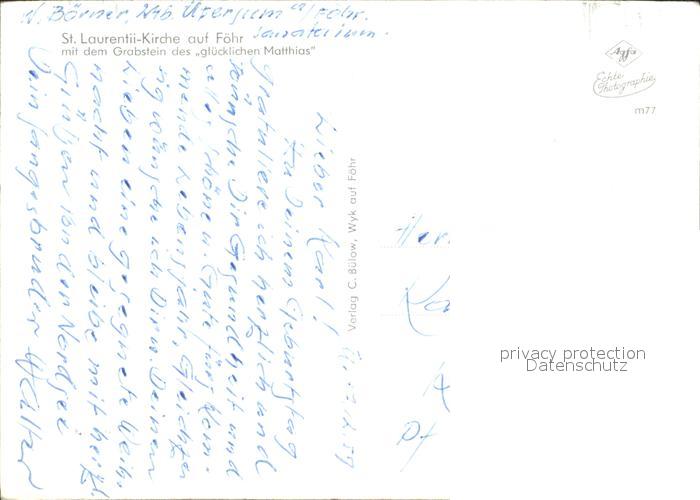 W. Börner, Utersum a/Föhr.
Sanatorium.
St. Laurentii-Kirche auf Föhr
mit dem Grabstein des „glücklichen Matthias"
Agfa
Echte
Photographie
m77
Verlag C. Bülow, Wyk auf Föhr
U. 17.12.59
Lieber Karl!
Zu Deinem Geburtstag
gratuliere ich herzlich und
wünsche Dir Gesundheit und
alles Schöne u. Gute fürs kom-
mende Lebensjahr. Gleichzei
tig wünsche ich Dir u. Deinen
Lieben eine gesegnete Weih-
nacht und bleibe mit herzl.
Grüßen von der Nordsee
Dein Sangesbruder Walter
Her
Ka
privacy protection
Datenschutz